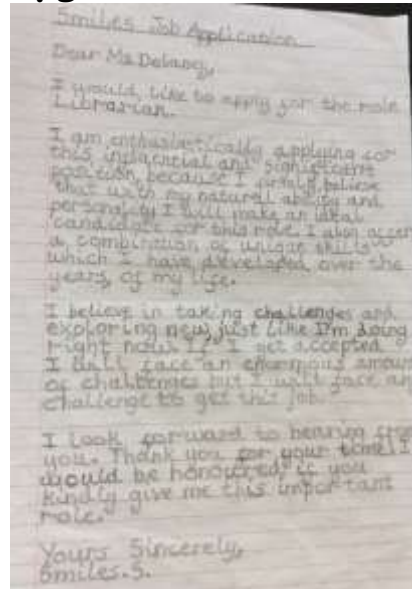 Smiles Job Application
Dear Ms Delaney,
I would like to apply for the role
Librarian.
I am enthusiastically applying for
this influential and significant
position, because I believe
that with my natural ability and
personality I will make an ideal
candidate for this role. I also
a combination of unique skills
which I have developed over the
years, of my life.
I believe in taking challenges and
exploring new, just like I'm doing
right now. If I get accepted
I will face an enormous amount
of challenges but I will face an
challenge to get this job.
I look forward to hearing from
you. Thank you for your time. I
would be honoured if you
kindly give me this important
role.
Yours Sincerely,
Smiles.S.